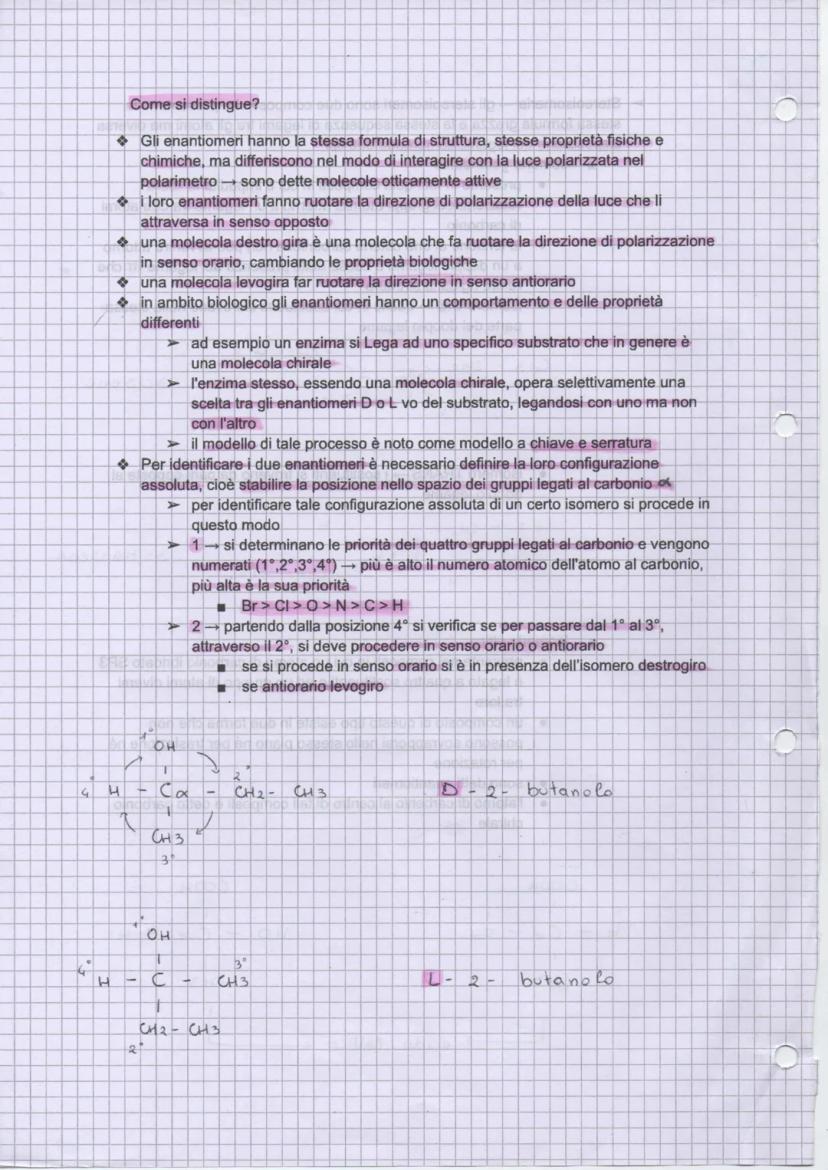 Come si distingue?
❖ Gli enantiomeri hanno la stessa formula di struttura, stesse proprietà fisiche e
chimiche, ma differiscono nel modo di interagire con la luce polarizzata nel
polarimetro → sono dette molecole otticamente attive
❖ i loro enantiomeri fanno ruotare la direzione di polarizzazione della luce che li
attraversa in senso opposto
❖ una molecola destro gira è una molecola che fa ruotare la direzione di polarizzazione
in senso orario, cambiando le proprietà biologiche
❖ una molecola levogira far ruotare la direzione in senso antiorario
❖ in ambito biologico gli enantiomeri hanno un comportamento e delle proprietà
differenti
➢ ad esempio un enzima si Lega ad uno specifico substrato che in genere è
una molecola chirale
➢ l'enzima stesso, essendo una molecola chirale, opera selettivamente una
scelta tra gli enantiomeri D o L vo del substrato, legandosi con uno ma non
con l'altro
➢ il modello di tale processo è noto come modello a chiave e serratura
❖ Per identificare i due enantiomeri è necessario definire la loro configurazione
assoluta, cioè stabilire la posizione nello spazio dei gruppi legati al carbonio α
➢ per identificare tale configurazione assoluta di un certo isomero si procede in
questo modo
➢ 1 → si determinano le priorità dei quattro gruppi legati al carbonio e vengono
numerati (1°,2°,3°,4°) → più è alto il numero atomico dell'atomo al carbonio,
più alta è la sua priorità
■ Br > Cl > O > N > C > H
➢ 2 → partendo dalla posizione 4° si verifica se per passare dal 1° al 3°,
attraverso il 2°, si deve procedere in senso orario o antiorario
■ se si procede in senso orario si è in presenza dell'isomero destrogiro
■ se antiorario levogiro
1° OH
4° H - Cα - CH2 - CH3 2° D - 2 - butanolo
CH3
3°
1° OH
4° H - C - CH3 3° L - 2 - butanolo
CH2 - CH3
2°